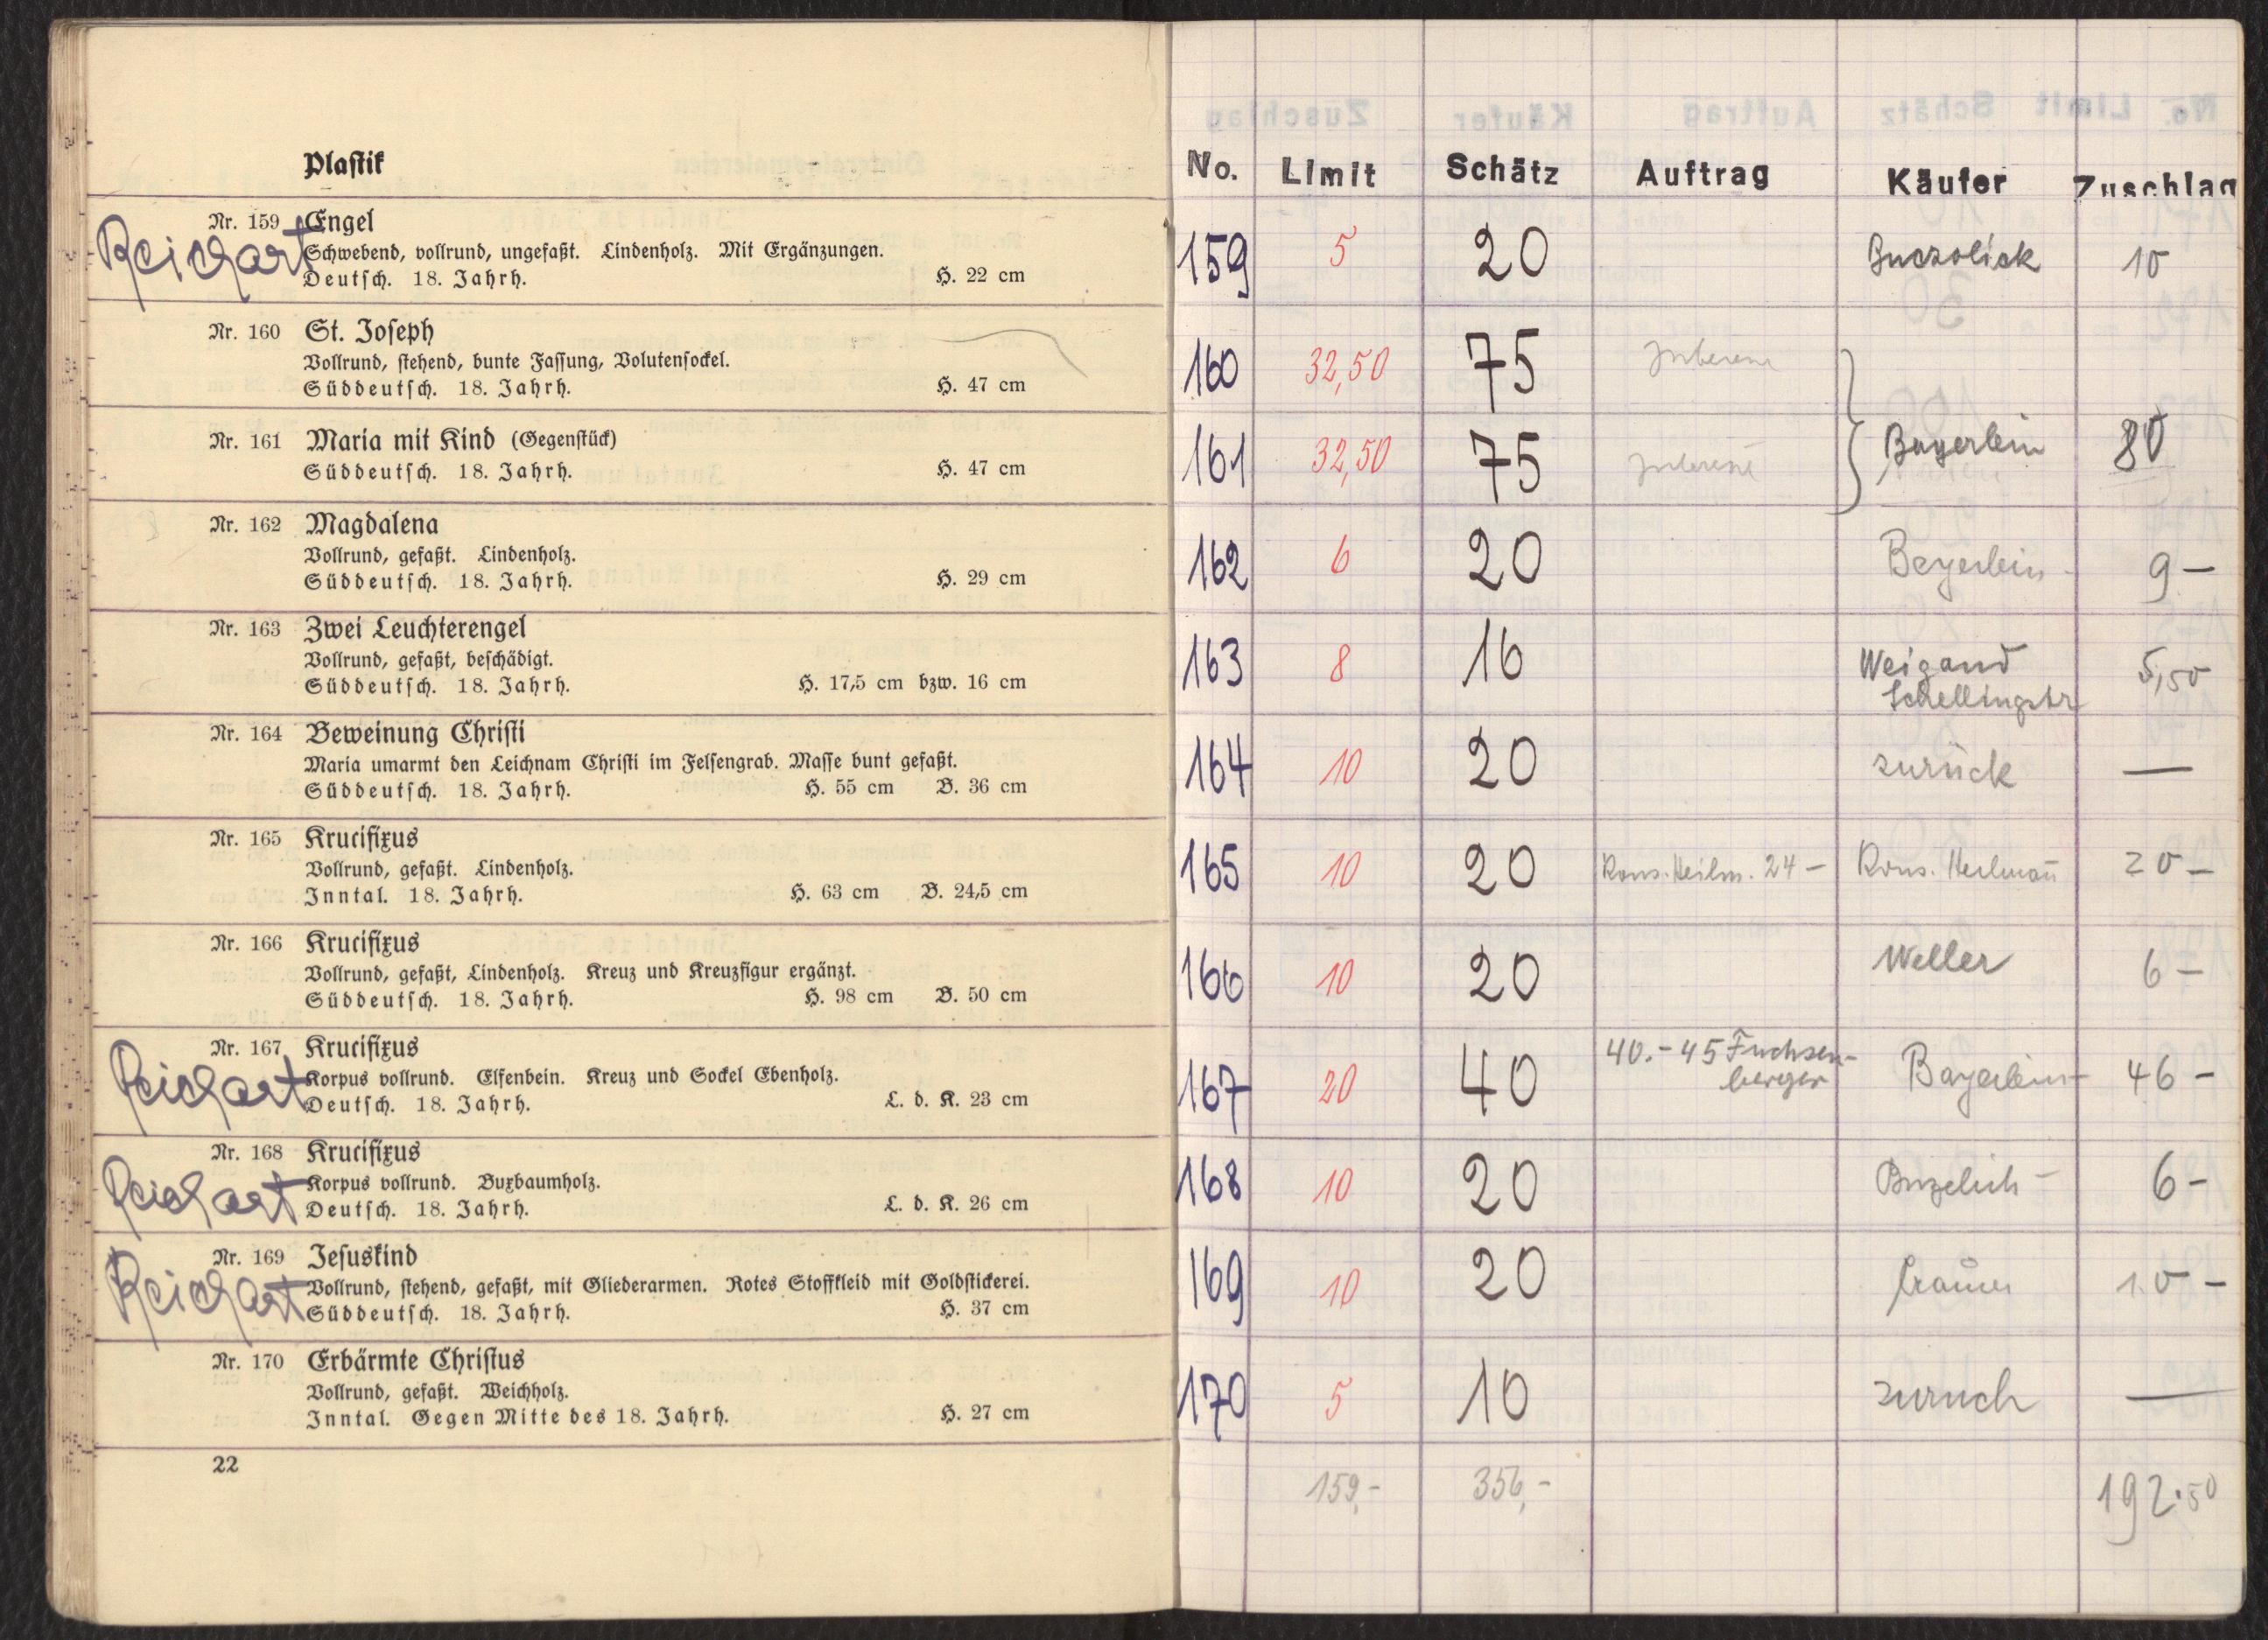 Plastik
Nr. 159 Engel
Schwebend, vollrund, ungefaßt. Lindenholz. Mit Ergänzungen.
Deutsch. 18. Jahrh. H. 22 cm
Reichart
Nr. 160 St. Joseph
Vollrund, stehend, bunte Fassung, Volutensockel.
Süddeutsch. 18. Jahrh. H. 47 cm
Nr. 161 Maria mit Kind (Gegenstück)
Süddeutsch. 18. Jahrh. H. 47 cm
Nr. 162 Magdalena
Vollrund, gefaßt. Lindenholz.
Süddeutsch. 18. Jahrh. H. 29 cm
Nr. 163 Zwei Leuchterengel
Vollrund, gefaßt, beschädigt.
Süddeutsch. 18. Jahrh. H. 17,5 cm bzw. 16 cm
Nr. 164 Beweinung Christi
Maria umarmt den Leichnam Christi im Felsengrab. Masse bunt gefaßt.
Süddeutsch. 18. Jahrh. H. 55 cm B. 36 cm
Nr. 165 Krucifixus
Vollrund, gefaßt. Lindenholz.
Inntal. 18. Jahrh. H. 63 cm B. 24,5 cm
Nr. 166 Krucifixus
Vollrund, gefaßt, Lindenholz. Kreuz und Kreuzfigur ergänzt.
Süddeutsch. 18. Jahrh. H. 98 cm B. 50 cm
Nr. 167 Krucifixus
Korpus vollrund. Elfenbein. Kreuz und Sockel Ebenholz.
Deutsch. 18. Jahrh. L. d. K. 23 cm
Reichart
Nr. 168 Krucifixus
Korpus vollrund. Buxbaumholz.
Deutsch. 18. Jahrh. L. d. K. 26 cm
Reichart
Nr. 169 Jesuskind
Vollrund, stehend, gefaßt, mit Gliederarmen. Rotes Stoffkleid mit Goldstickerei.
Süddeutsch. 18. Jahrh. H. 37 cm
Reichart
Nr. 170 Erbärmte Christus
Vollrund, gefaßt. Weichholz.
Inntal. Gegen Mitte des 18. Jahrh. H. 27 cm
22
No. Limit Schätz Auftrag Käufer Zuschlag
159 5 20 10
160 32,50 75
161 32,50 75 Bayerlein 80
162 6 20 Beyerlein 9 –
163 8 16 Weigand 5,50
Schellingstr
164 10 20 zurück —
165 10 20 Kons. Heilm. 24 – Kons. Heilmañ 20 –
166 10 20 Weller 6 –
167 20 40 40.- 45 Fuchsen- Bayerlein 46 –
berger
168 10 20 6 –
169 10 20 10 –
170 5 10 zurück —
159,- 356,- 192.50